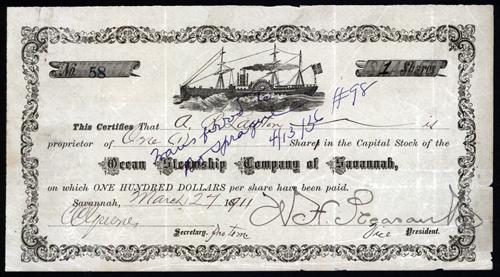 No 58
1 Shares
This Certifies That A. is
proprietor of One Shares in the Capital Stock of the
Ocean Steamship Company of Savannah,
on which ONE HUNDRED DOLLARS per share have been paid.
Savannah, March 27 1911
Secretary. Pro tem
Vice President.
Transferred to
Sprague
4/13/36 #98